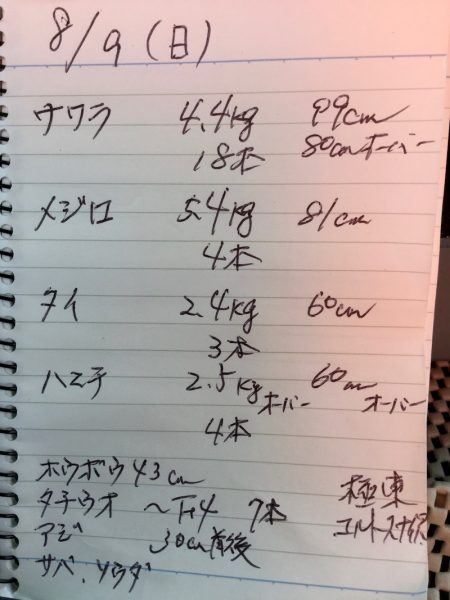 8/9(日)
サワラ 4.4kg 99cm
18本 80cmオーバー
メジロ 5.4kg 81cm
4本
タイ 2.4kg 60cm
3本
ハマチ 2.5kgオーバー 60cmオーバー
4本
ホウボウ 43cm
タチウオ 〜F4 7本
アジ 30cm前後
サバ、ソウダ
極東